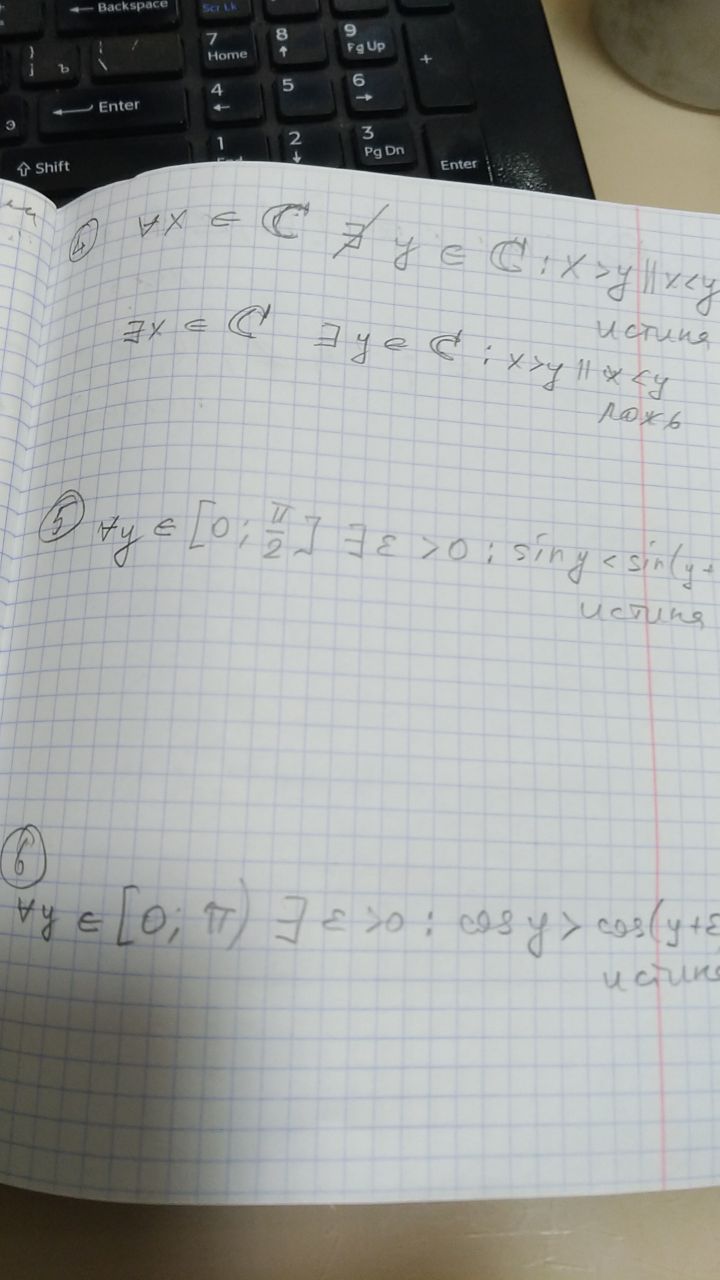 Backspace
Scr Lk
7 Home
8
9 Pg Up
+
}
] ъ
\
4
5
6
Enter
Э
Shift
1
2
3 Pg Dn
Enter
④ ∀x ∈ ℂ ∄ y ∈ ℂ : x>y || x<y
истина
∃x ∈ ℂ ∃y ∈ ℂ : x>y || x<y
ложь
⑤ ∀y ∈ [0; π/2] ∃ε >0 : sin y < sin(y+
истина
⑥
∀y ∈ [0; π) ∃ ε>0 : cos y > cos(y+ε
истина